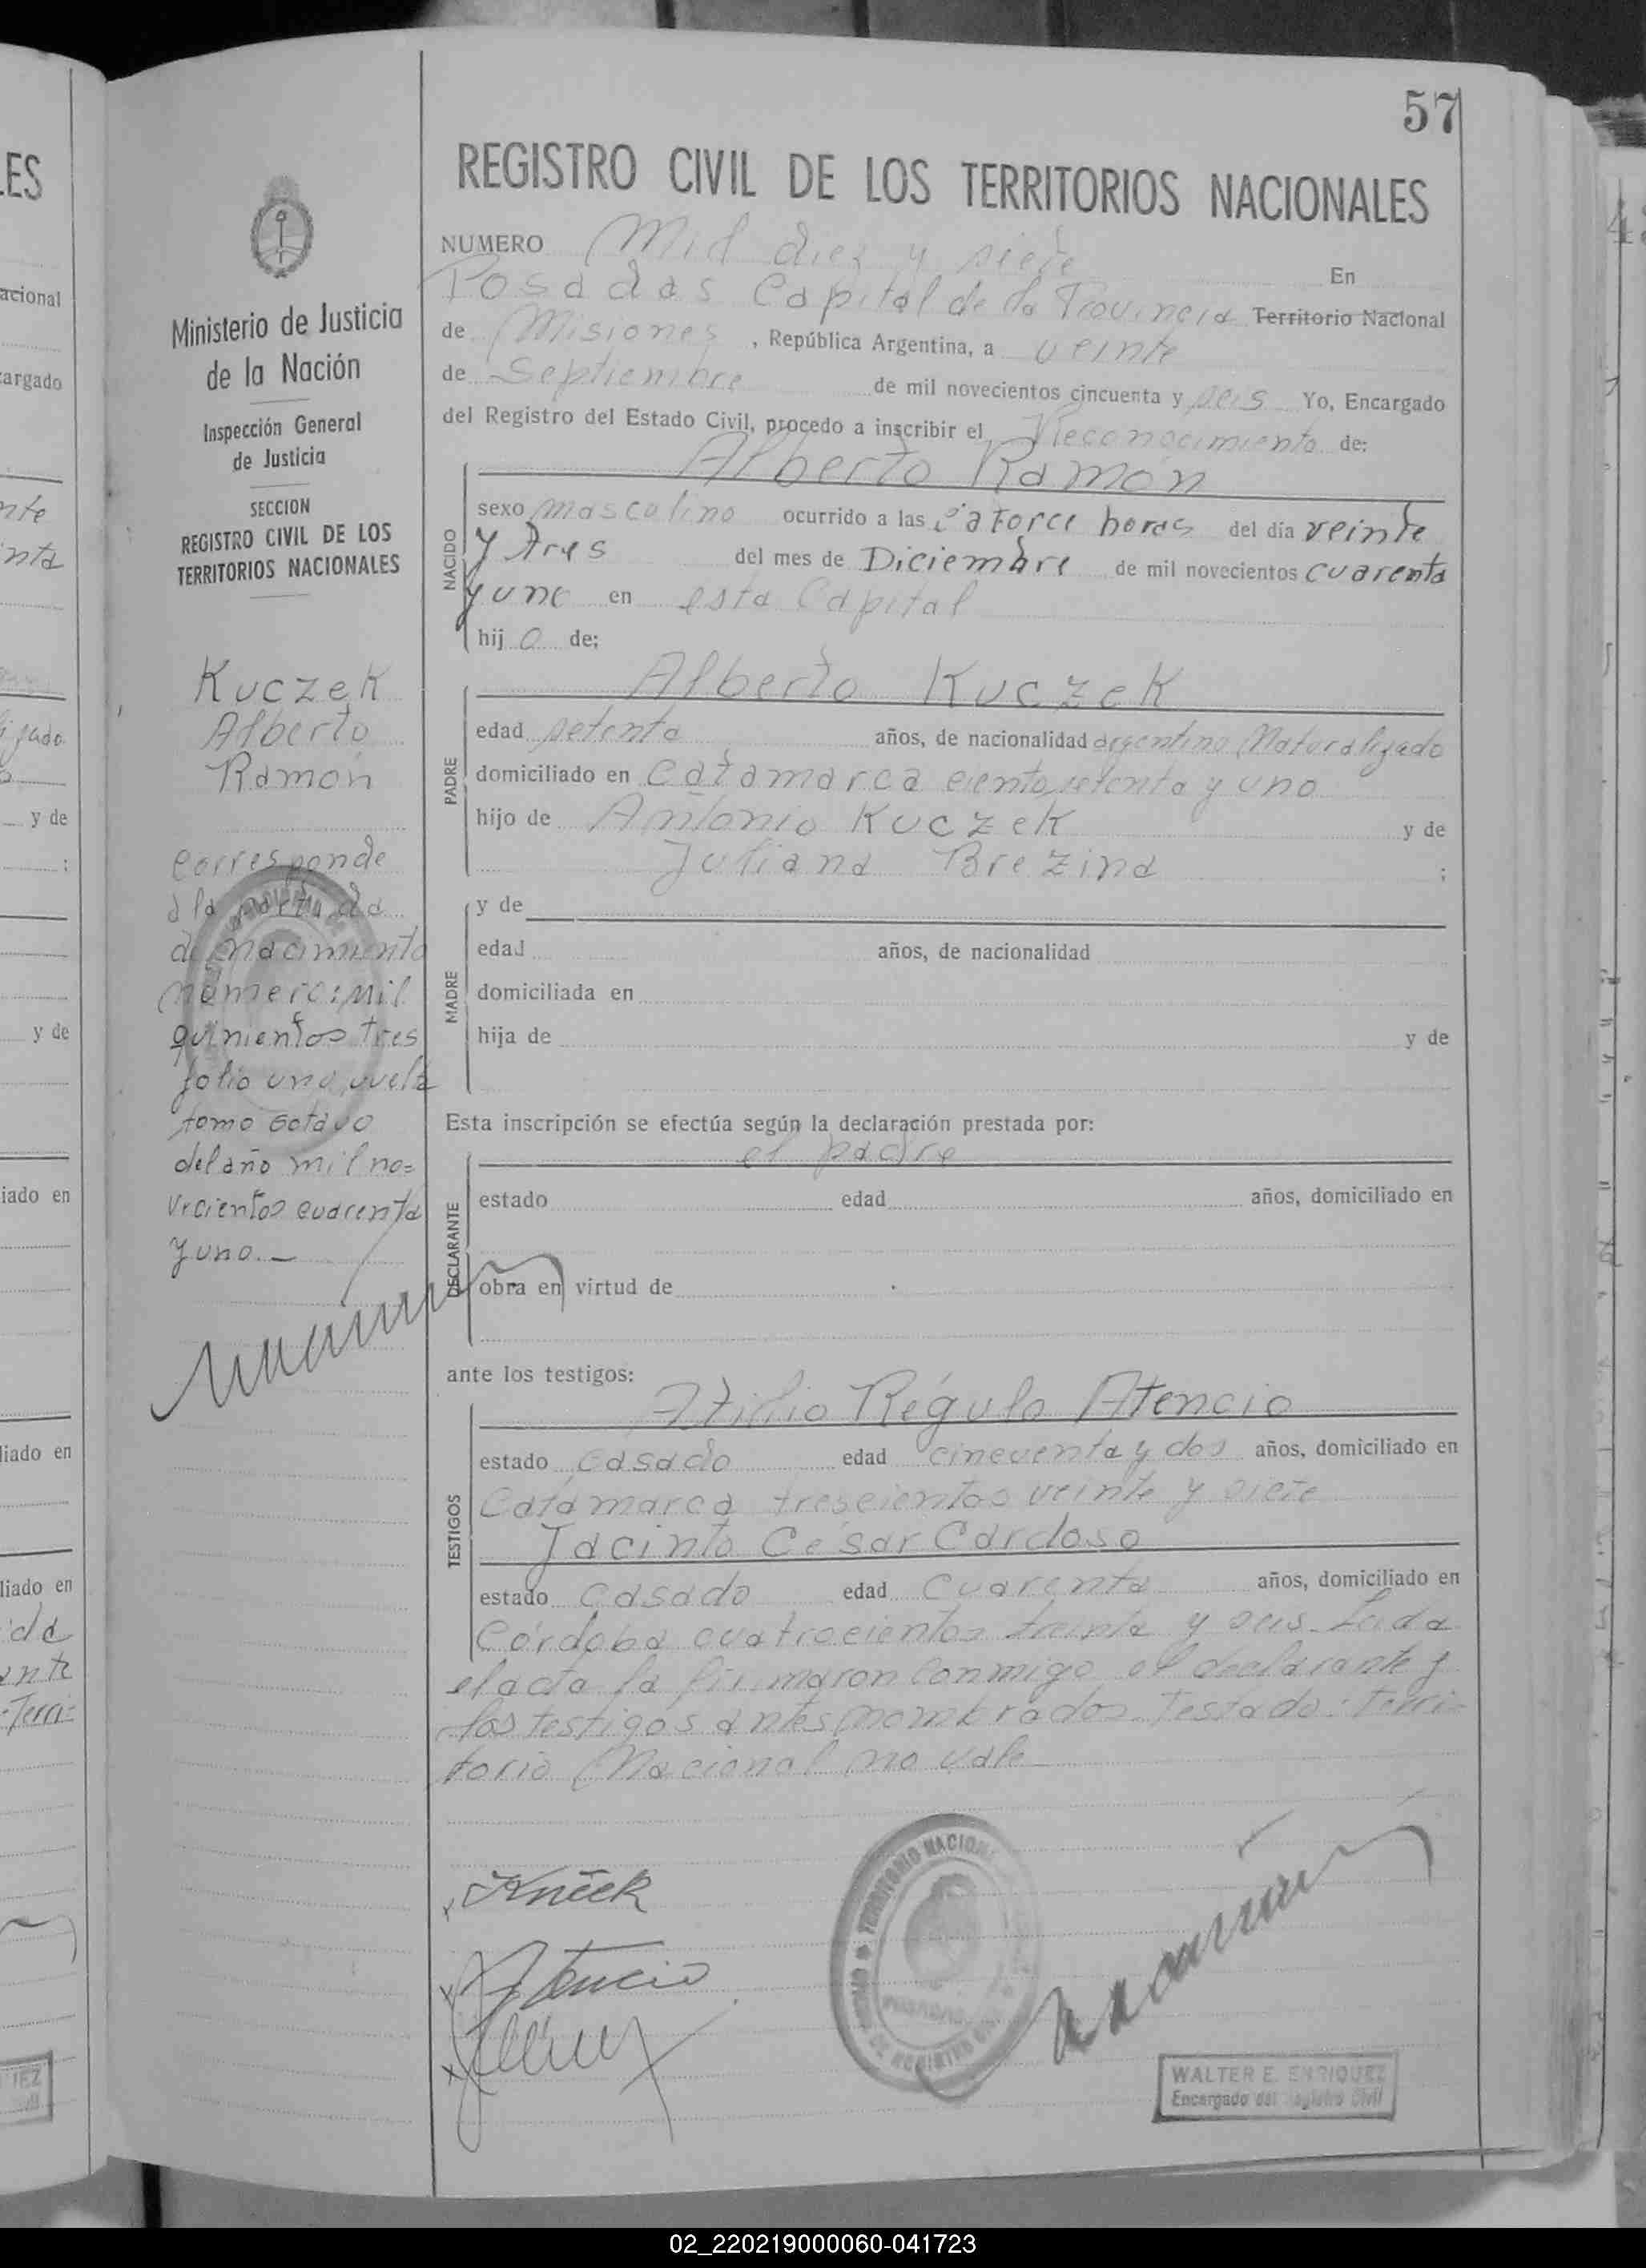 57
REGISTRO CIVIL DE LOS TERRITORIOS NACIONALES
NUMERO Mil diez y siete En
Posadas Capital de la Provincia Territorio Nacional
de Misiones, República Argentina, a veinte
de Septiembre de mil novecientos cincuenta y seis Yo, Encargado
del Registro del Estado Civil, procedo a inscribir el Reconocimiento de:
Alberto Ramón
NACIDO
sexo masculino ocurrido a las catorce horas del día veinte
y tres del mes de Diciembre de mil novecientos cuarenta
y uno en esta Capital
hijo de;
Alberto Kuczek
PADRE
edad setenta años, de nacionalidad argentino Naturalizado
domiciliado en Catamarca ciento setenta y uno
hijo de Antonio Kuczek y de
Juliana Brezina ;
MADRE
y de
edad años, de nacionalidad
domiciliada en
hija de y de
Esta inscripción se efectúa según la declaración prestada por:
el padre
DECLARANTE
estado edad años, domiciliado en
obra en virtud de
ante los testigos:
Atilio Régulo Atencio
TESTIGOS
estado casado edad cincuenta y dos años, domiciliado en
Catamarca trescientos veinte y siete
Jacinto César Cardoso
estado casado edad cuarenta años, domiciliado en
Córdoba cuatrocientos treinta y seis. Leida
el acta la firmaron conmigo el declarante y
los testigos antes nombrados. Testado: Terri-
torio Nacional no vale
Atencio
TERRITORIO NACIONAL
WALTER E. ENRIQUEZ
Encargado del Registro Civil
Ministerio de Justicia
de la Nación
Inspección General
de Justicia
SECCION
REGISTRO CIVIL DE LOS
TERRITORIOS NACIONALES
Kuczek
Alberto
Ramón
Corresponde
a la partida
de nacimiento
número: mil
quinientos tres
folio uno vuelta
tomo octavo
del año mil no=
vecientos cuarenta
y uno.—
02_220219000060-041723